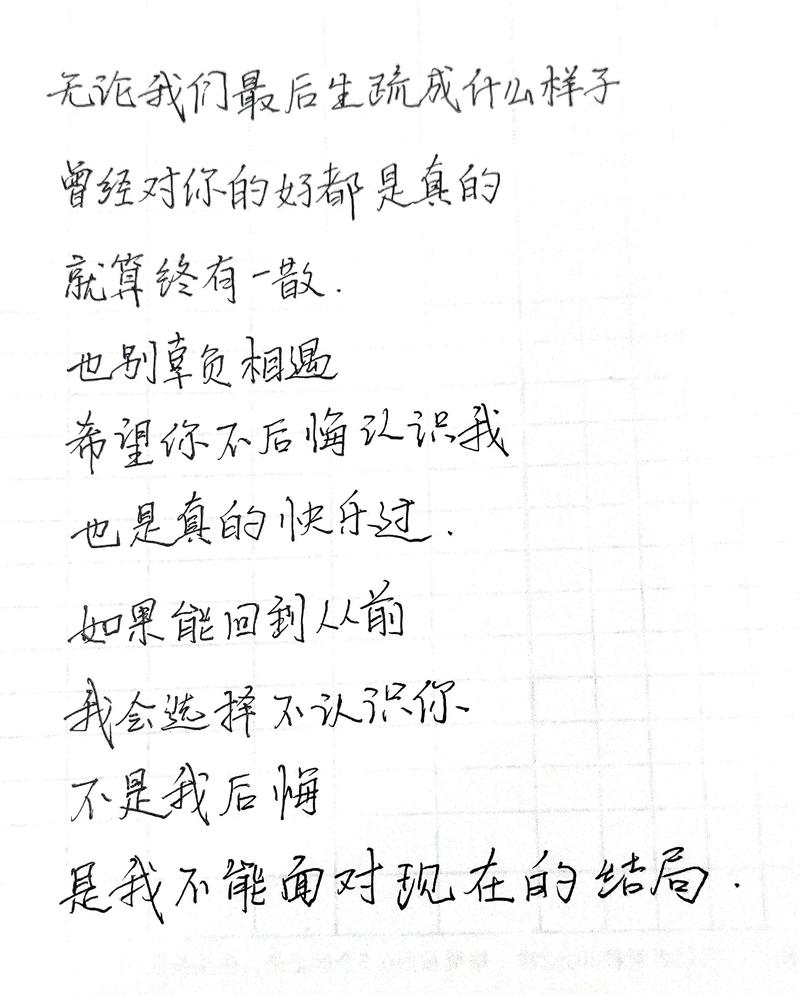 无论我们最后生疏成什么样子
曾经对你的好都是真的
就算终有一散.
也别辜负相遇
希望你不后悔认识我
也是真的快乐过.
如果能回到从前
我会选择不认识你
不是我后悔
是我不能面对现在的结局.